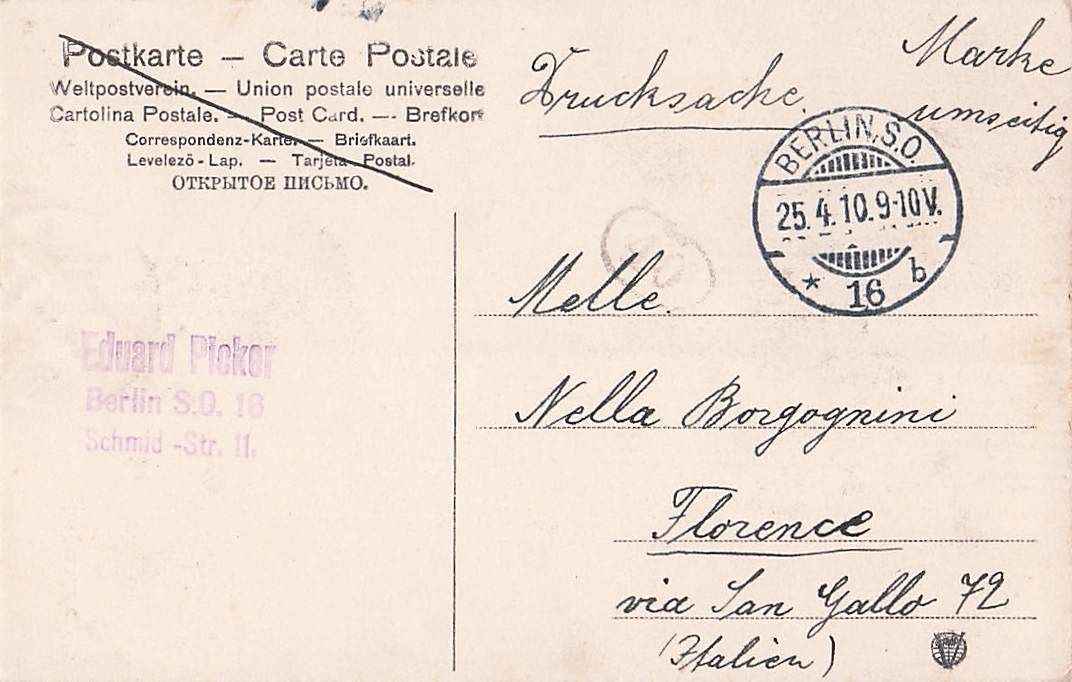 Postkarte – Carte Postale
Weltpostverein. — Union postale universelle
Cartolina Postale. — Post Card. — Brefkort
Correspondenz-Karte. — Briefkaart.
Levelező-Lap. — Tarjeta Postal.
ОТКРЫТОЕ ПИСЬМО.
Drucksache.
Marke
umseitig
BERLIN, S.O.
25.4.10.9-10V.
* 16 b
Eduard Picker
Berlin S.O. 16
Schmid -Str. 11.
Melle.
Nella Borgognini
Florence
via San Gallo 72
(Italien)